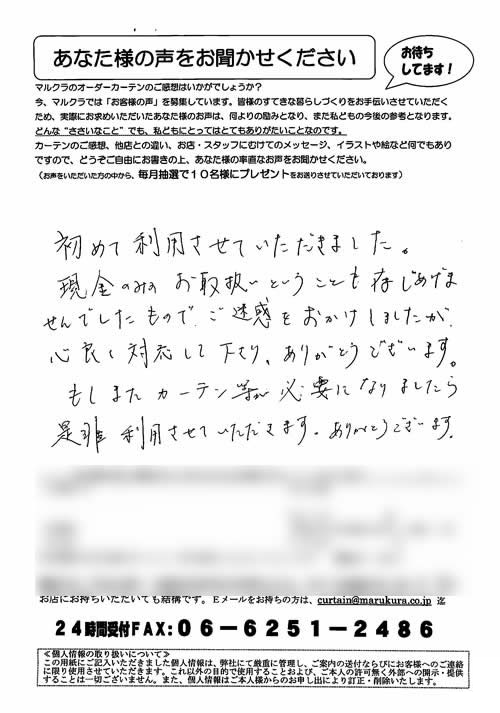 あなた様の声をお聞かせください
お待ち
してます！
マルクラのオーダーカーテンのご感想はいかがでしょうか？
今、マルクラでは「お客様の声」を募集しています。皆様のすてきな暮らしづくりをお手伝いさせていただく
ため、実際にお求めいただいたあなた様のお声は、何よりの励みとなり、また私どもの今後の参考となります。
どんな“ささいなこと”でも、私どもにとってはとてもありがたいことなのです。
カーテンのご感想、他店との違い、お店・スタッフにむけてのメッセージ、イラストや絵など何でもあり
ですので、どうぞご自由にお書きの上、あなた様の率直なお声をお聞かせください。
（お声をいただいた方の中から、毎月抽選で１０名様にプレゼントをお送りさせていただいております）
初めて利用させていただきました。
現金のみのお取扱いということも存じあげま
せんでしたもので、ご迷惑をおかけしましたが、
心良く対応して下さり、ありがとうございます。
もしまたカーテン等が必要になりましたら
是非利用させていただきます。ありがとうございます。
お店にお持ちいただいても結構です。Ｅメールをお持ちの方は、curtain@marukura.co.jp 迄
２４時間受付FAX：０６－６２５１－２４８６
≪個人情報の取り扱いについて≫
この用紙にご記入いただきました個人情報は、弊社にて厳重に管理し、ご案内の送付ならびにお客様へのご連絡
に限り使用させていただきます。これ以外の目的で使用することおよび、ご本人の許可無く外部への開示・提供
することは一切ございません。また、個人情報はご本人様からのお申し出により訂正・削除いたします。